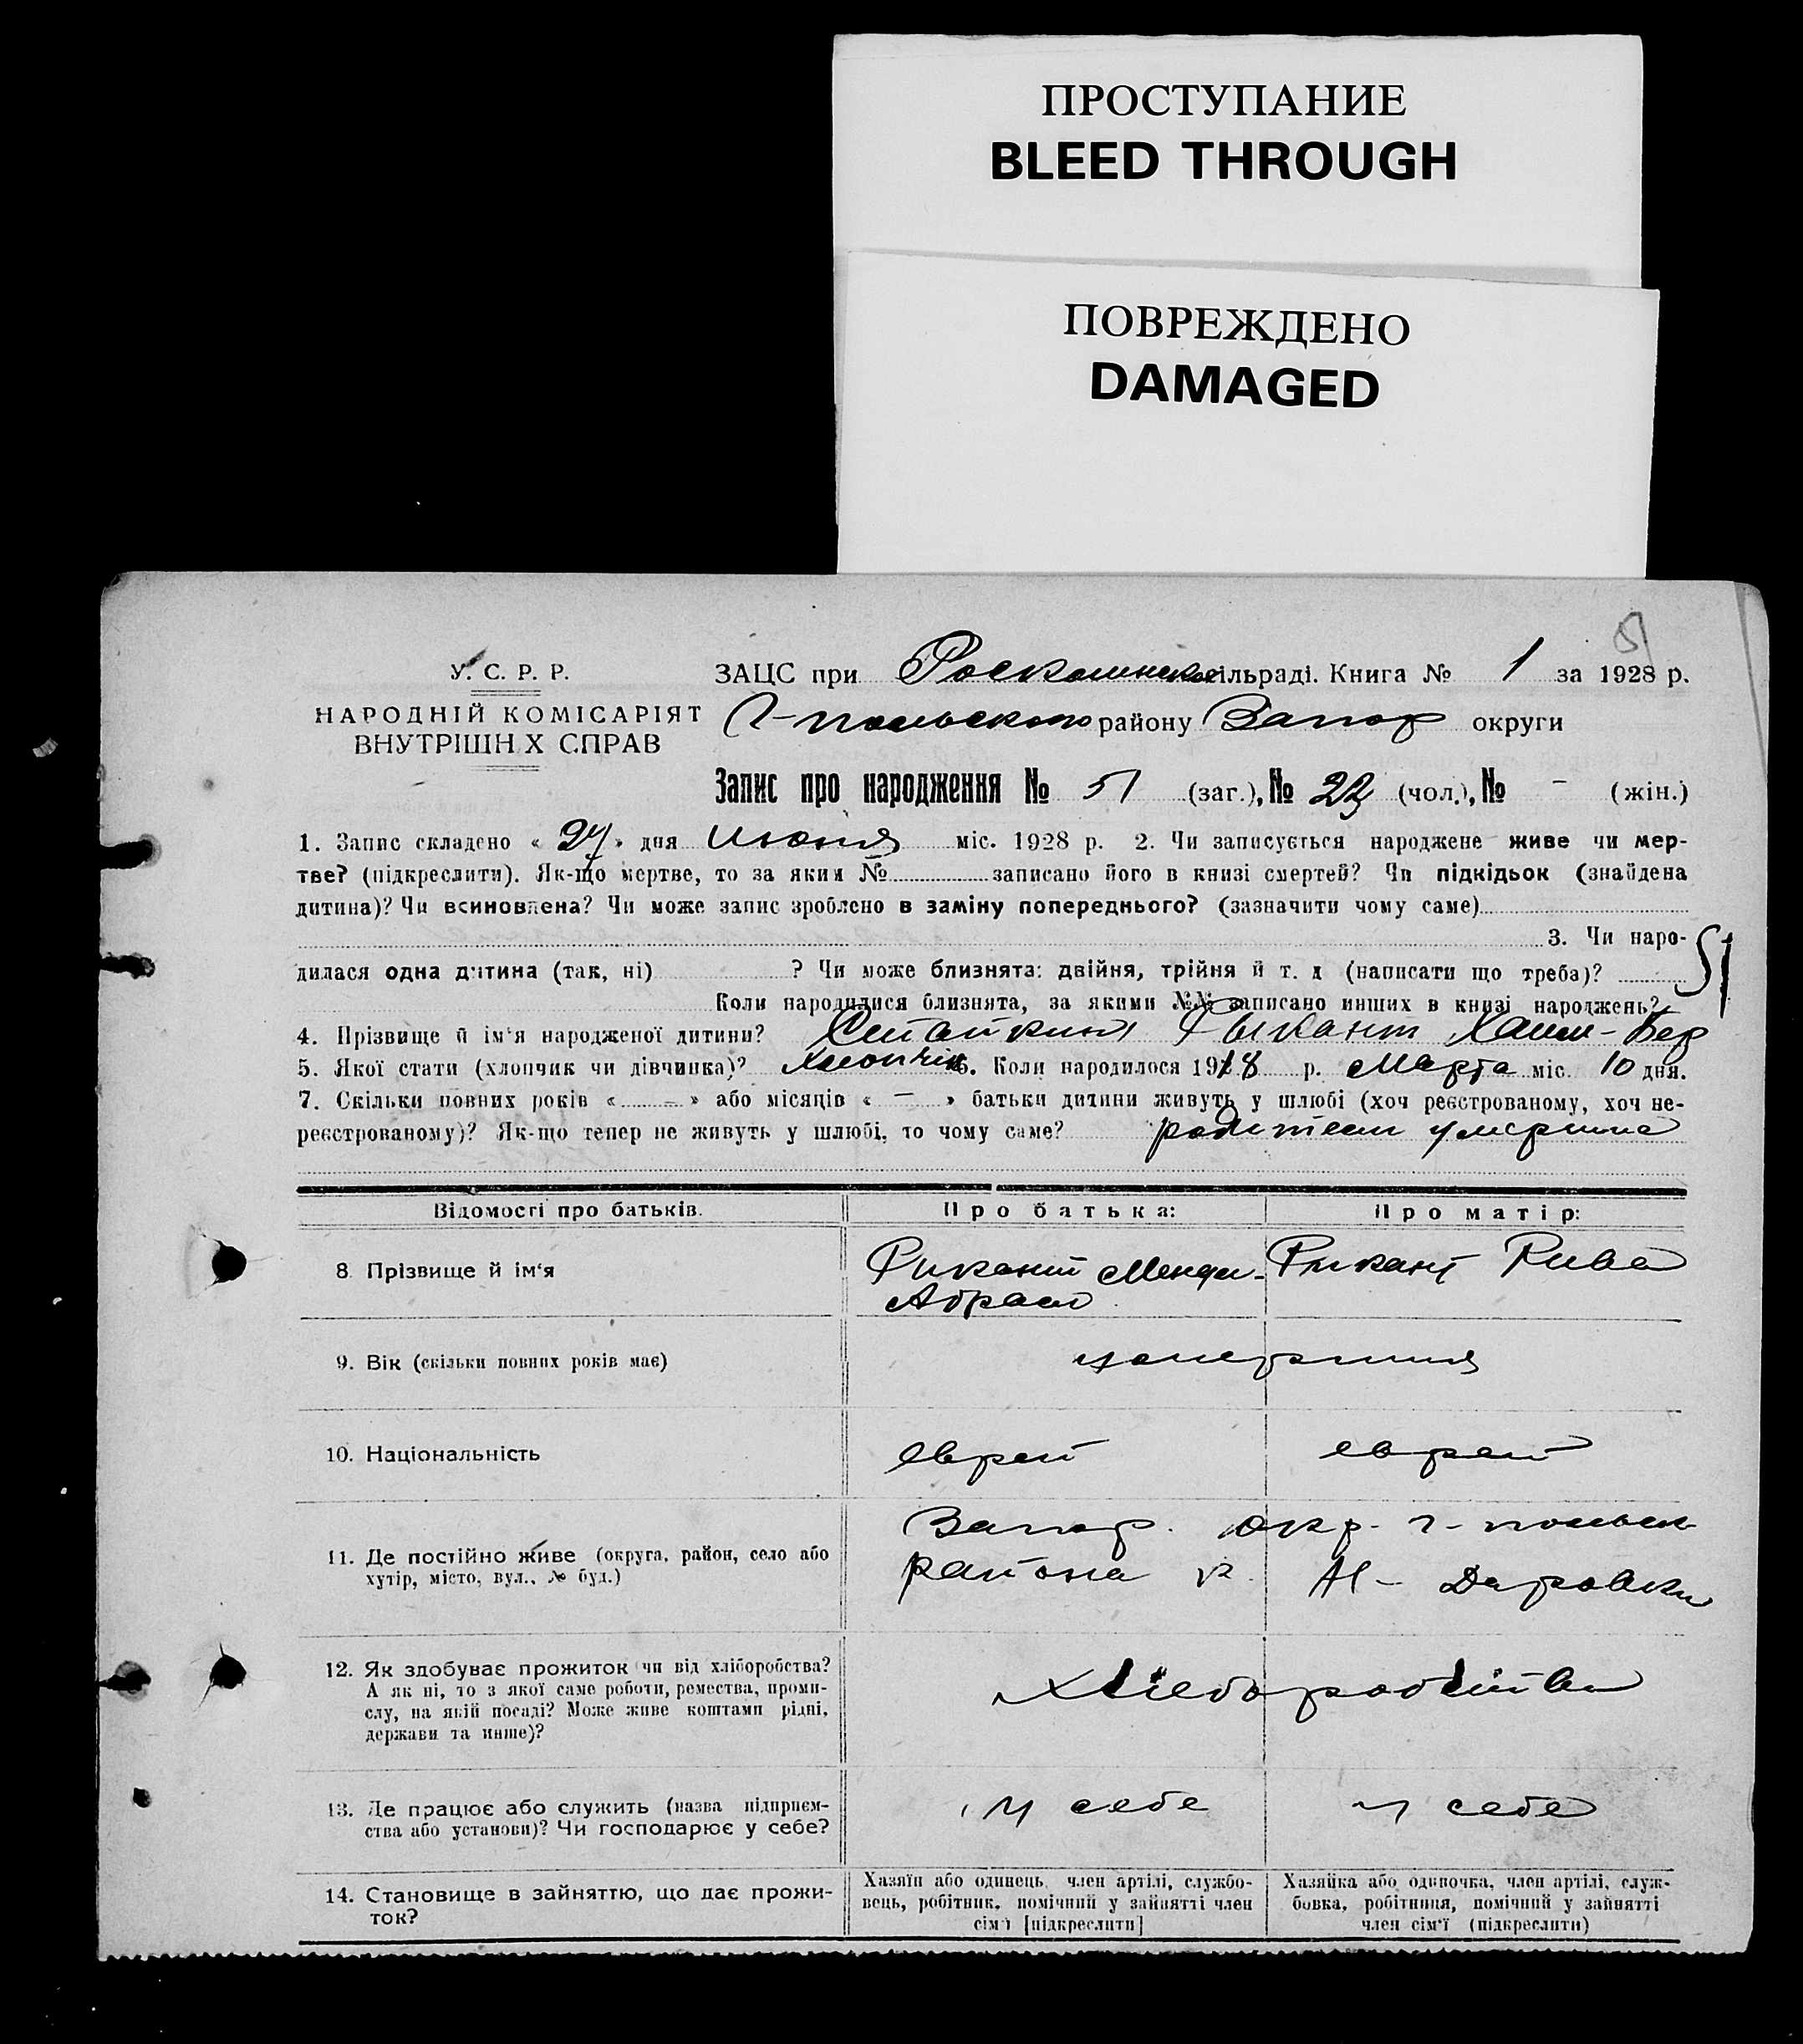 ПРОСТУПАНИЕ
BLEED THROUGH
ПОВРЕЖДЕНО
DAMAGED
51
У. С. Р. Р.
НАРОДНІЙ КОМІСАРІЯТ
ВНУТРІШН Х СПРАВ
ЗАЦС при сільраді. Книга № 1 за 1928 р.
району Запор округи
Запис про народження № 51 (заг.), № 22 (чол.), № – (жін.)
1. Запис складено « 27 » дня Июня міс. 1928 р. 2. Чи записується народжене живе чи мер-
тве? (підкреслити). Як-що мертве, то за яким № записано його в книзі смертей? Чи підкідьок (знайдена
дитина)? Чи всиновлена? Чи може запис зроблено в заміну попереднього? (зазначити чому саме)
3. Чи наро-
дилася одна дитина (так, ні) ? Чи може близнята: двійня, трійня й т. д (написати що треба)?
51
Коли народилися близнята, за якими №№ записано инших в книзі народжень?
4. Прізвище й ім'я народженої дитини? Хаим-Бер
5. Якої стати (хлопчик чи дівчинка)? Хлопчік 6. Коли народилося 1918 р. Марта міс. 10 дня.
7. Скільки повних років « – » або місяців « – » батьки дитини живуть у шлюбі (хоч реєстрованому, хоч не-
реєстрованому)? Як-що тепер не живуть у шлюбі, то чому саме? родители умерши
Відомості про батьків.
Про батька:
Про матір:
8. Прізвище й ім'я
Рикант Менди-
Абрам
Рикант Рива
9. Вік (скільки повних років має)
10. Національність
еврей
еврей
11. Де постійно живе (округа, район, село або
хутір, місто, вул., № буд.)
Запор. окр. г-польск
района к. Н- Даровки
12. Як здобуває прожиток чи від хліборобства?
А як ні, то з якої саме роботи, ремества, проми-
слу, на якій посаді? Може живе коштами рідні,
держави та инше)?
13. Де працює або служить (назва підприєм-
ства або установи)? Чи господарює у себе?
у себе
у себе
14. Становище в зайняттю, що дає прожи-
ток?
Хазяїн або одинець, член артілі, службо-
вець, робітник, помічний у зайнятті член
сім'ї [підкреслити]
Хазяйка або одиночка, член артілі, служ-
бовка, робітниця, помічний у зайнятті
член сім'ї (підкреслити)